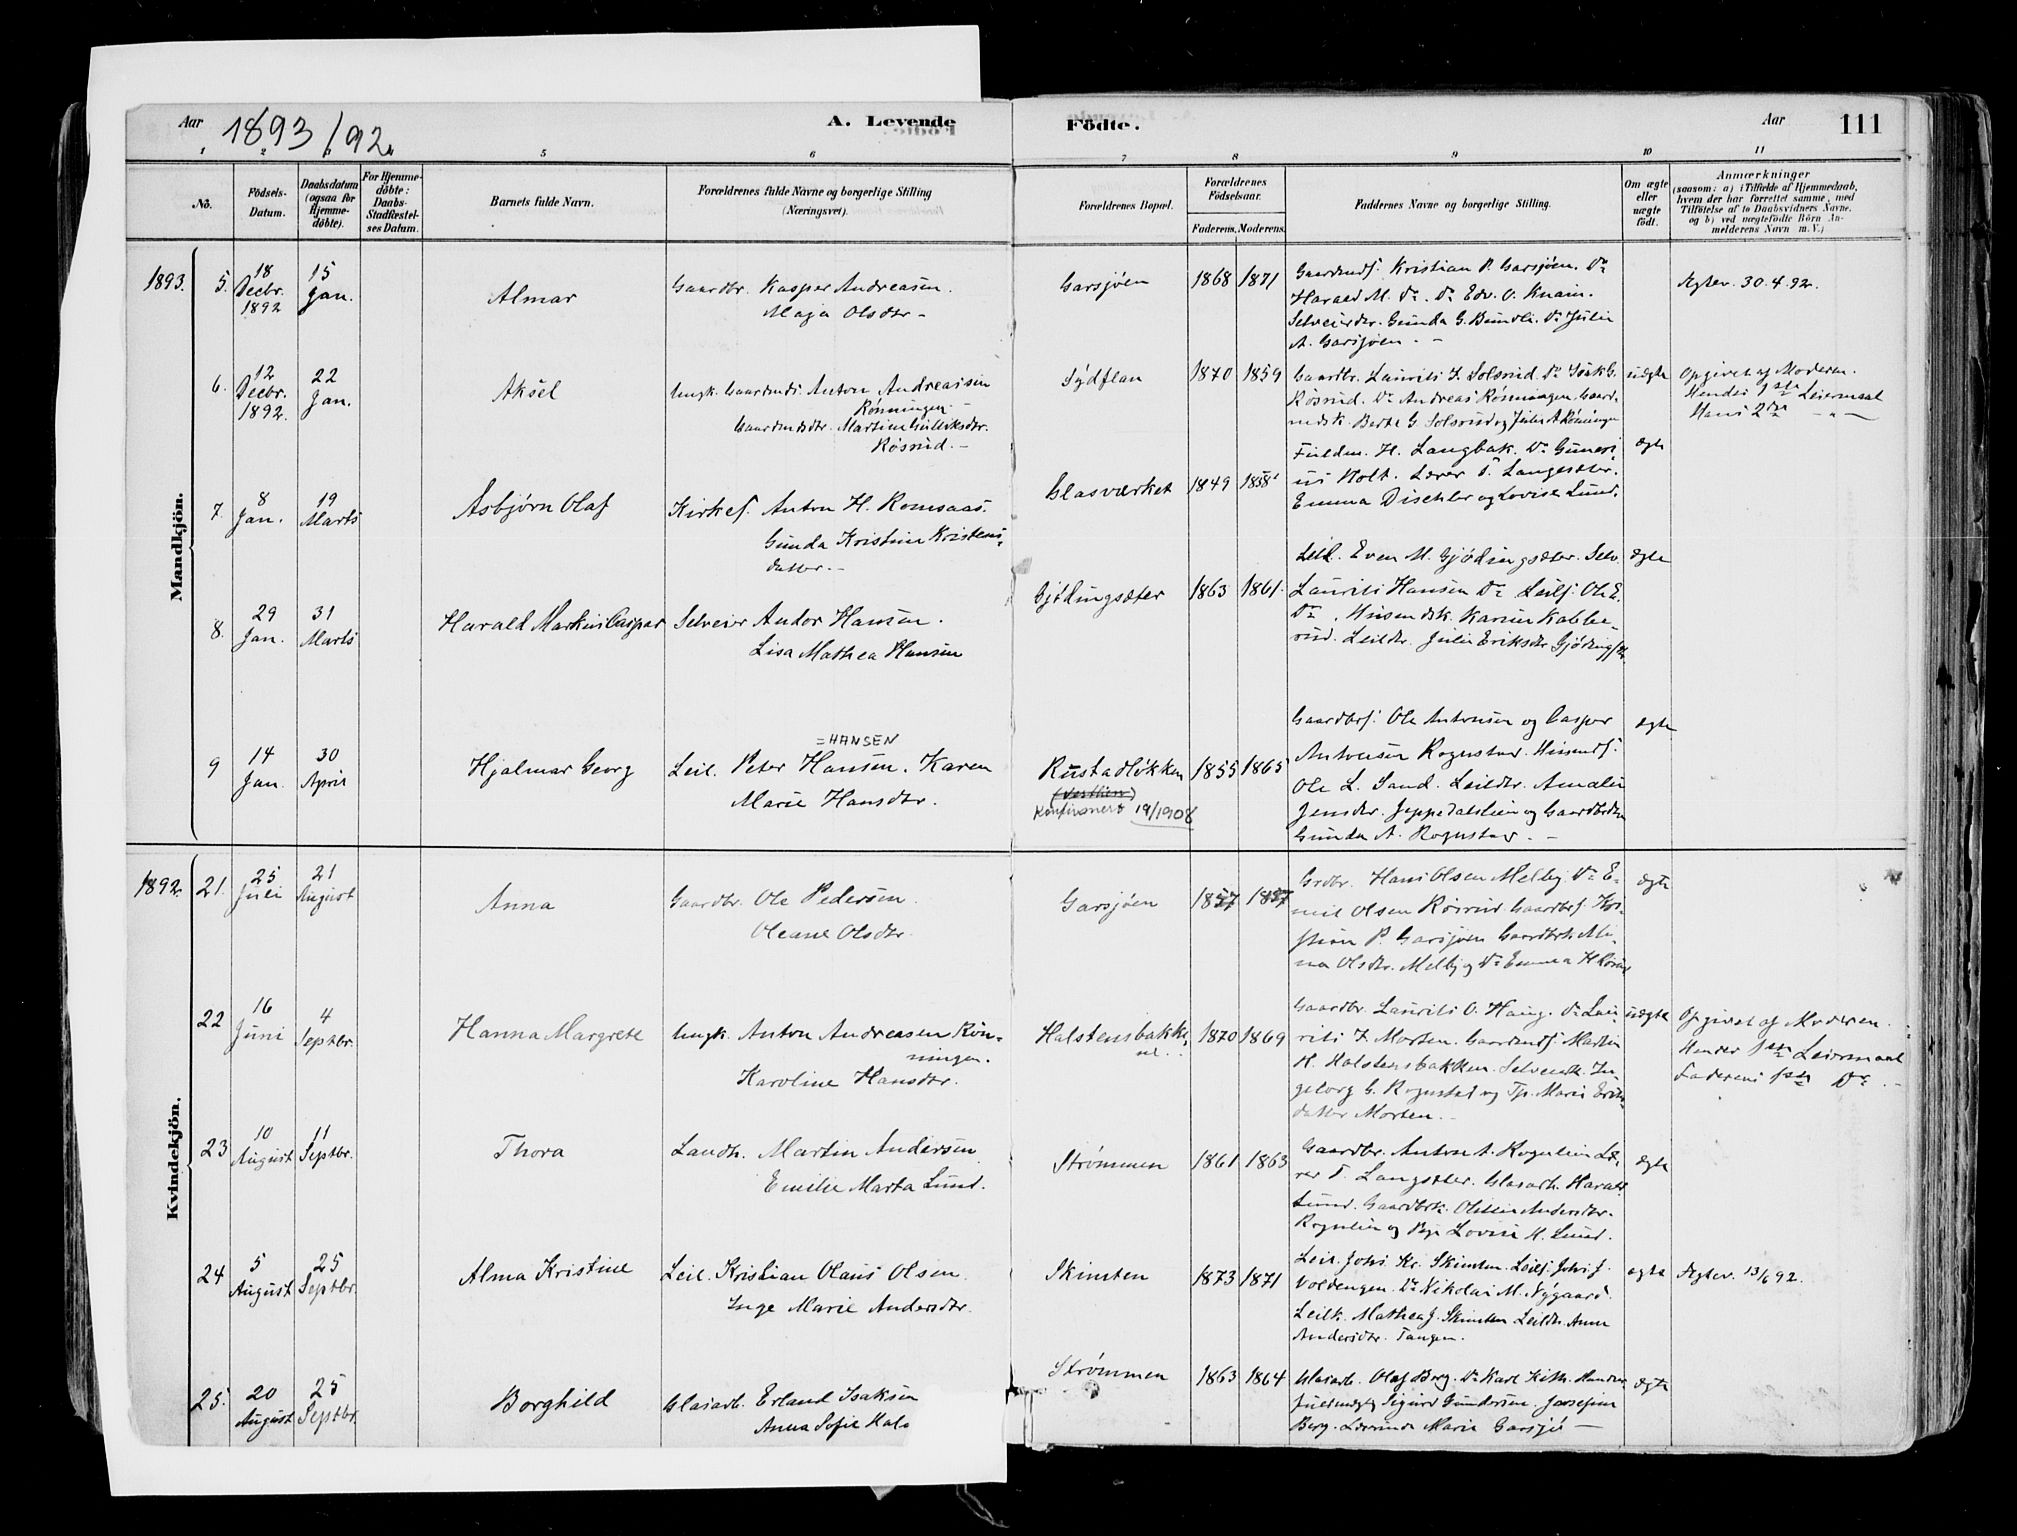 Aar 1893/92.
A. Levende
Födte.
Aar
111
1 2 3 4 5 6 7 8 9 10 11
No.
Födsels-
Datum.
Daabsdatum
(ogsaa for
Hjemme-
döbte).
For Hjemme-
döbte:
Daabs-
Stadfæstel-
ses Datum.
Barnets fulde Navn.
Forældrenes fulde Navne og borgerlige Stilling
(Næringsvei).
Forældrenes Bopæl.
Forældrenes
Födselsaar.
Faderens. Moderens.
Faddernes Navne og borgerlige Stilling.
Om ægte
eller
uægte
födt.
Anmærkninger
(saasom: a) i Tilfælde af Hjemmedaab,
hvem der har forrettet samme, med
Tilföielse af to Daabsvidners Navne,
og b) ved uægtefödte Börn An-
melderens Navn m. V.)
Mandkjön.
1893.
5. 18 Decbr. 1892
15 Jan.
Almar
Gaardbr. Kasper Andreasen.
Maja Olsdtr –
Garsjøen 1868 1871
Gaardmdf. Kristian P. Garsjøen. Do
Harald M. Do. Do Edv. O. Knain.
Selveierdtr. Gunda G. Bundli. Do Julie
A. Garsjøen. –
Ægtev. 30.4.92.
6. 12 Decbr. 1892.
22 Jan.
Aksel
Ungk. Gaardmds. Anton Andreassen
Rönningen –
Gaardmdsdtr. Martine Gulliksdtr.
Røsrud. –
Sydflan 1870 1859
Gaardbr. Laurits J. Solsrud. Do Isak G.
Røsrud. Do Andreas Rønningen Gaard-
mdsk. Berte G. Solsrud og Julie A Rönningen
uægte
Opgivet af Moderen.
Hendes 1ste Leiermaal
Hans 2det – " –
7. 8 Jan.
19 Marts
Asbjørn Olaf
Kirkes. Anton H. Romsaas.
Gunda Kristine Kristens-
datter. –
Glasværket 1849 1858
Fuldm. H. Langbak. Do Guneri-
us Holt. Lærer T. Langsæter.
Emma Dischler og Lovise Lund.
ægte
8. 29 Jan.
31 Marts
Harald Markus Caspar
Selveier Andor Hansen.
Lisa Mathea Hansen
Gjødingsæter 1863 1861.
Leil. Even M. Gjødingsæter. Selv.
Laurits Hansen Do Leilf. Ole E.
Do. Husmdsk. Karen Kabbe-
rud. Leildtr. Julie Eriksdtr Gjødingsætr.
ægte
9 14 Jan.
30 April
Hjalmar Georg
= HANSEN
Leil. Peter Hansen. Karen
Marie Hansdtr.
Rustadløkken
(Vestlien)
Konfirmert 19/1908
1855 1865
Gaardbrs. Ole Antonsen og Casper
Antonsen Rognstad. Husmdf.
Ole L. Sand. Leildtr. Amalie
Jensdtr. Jeppedalslien og Gaardbrdtr
Gunda A. Rognstad. –
ægte
Kvindekjön.
1892.
21. 25 Juli
21 August
Anna
Gaardbr. Ole Pedersen.
Oleane Olsdtr.
Garsjøen 1857 1857
Grdbr. Hans Olsen Melby. Do E-
mil Olsen Røsrud Gaardbrf. Kri-
stian P. Garsjøen Gaardbrk. Mi-
na Olsdtr. Melby og Do Emma H Røsrud
ægte
22 16 Juni
4 Septbr.
Hanna Margrete
Ungk. Anton Andreasen Rön-
ningen.
Karoline Hansdtr.
Halstensbakke-
ne. 1870 1869
Gaardbr. Laurits O. Haug. Do Lau-
rits J. Morten. Gaardmdf. Martin
H. Halstensbakken. Selveierdtr. In-
geborg G. Rognstad og Tjp. Marie Eriks-
datter Morten. –
uægte
Opgivet af Moderen.
Hendes 1ste Leiermaal
Faderens 1ste Do. –
23 10 August
11 Septbr.
Thora
Landh. Martin Andersen
Emilie Marta Lund.
Strømmen 1861 1863
Gaardbr. Anton A. Rognlien Læ-
rer T. Langsæter. Glasarb. Harald
Lund. Gaardbrk. Oline Andersdtr.
Rognlien og Pige Lovise M. Lund.
ægte
24 5 August
25 Septbr.
Alma Kristine
Leil. Kristian Olaus Olsen.
Inge Marie Andersdtr.
Skinsten 1873 1871
Leil. Johs. Kr. Skinsten. Leilf. Johs. J.
Voldengen. Do Nikolai M. Nygaard.
Leilk. Mathea J. Skinsten Leildtr. Anne
Andersdtr. Tangen.
ægte
Ægtev. 13/6 92.
25. 20 August
25 Septbr.
Borghild
Glasarb. Erland Isaksen
Anna Sofie
Strømmen 1863 1864
Glasarb. Olaf Berg. Do Karl Keth. Handels-
fuldmægtig Sigurd Gundersen. Josefine
Berg. Lærerinde Marie Garsjø –
ægte